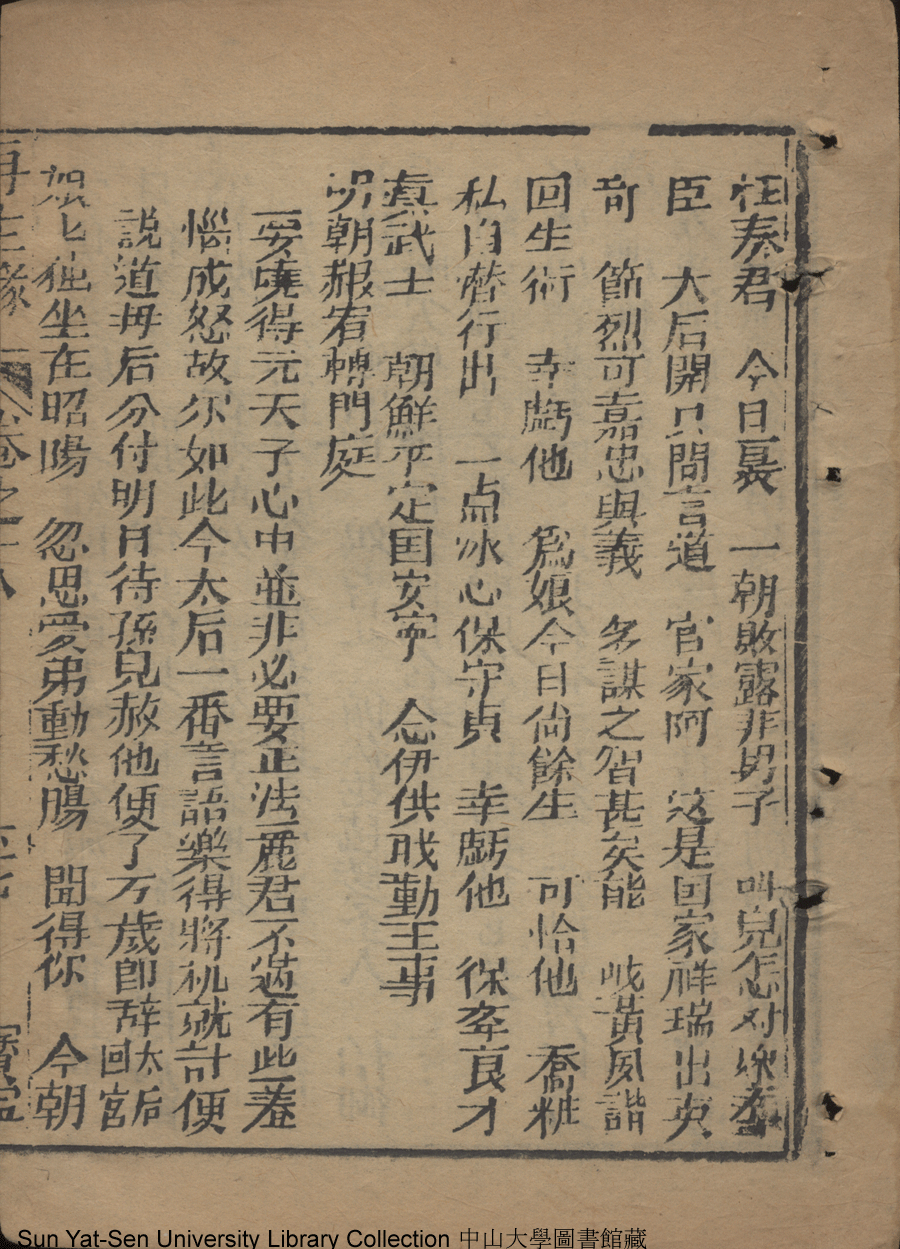 枉奏君　今日裏　一朝敗露非男子　叫兒怎对
臣　大后開只問言道　官家阿　这是囯家祥瑞出英
奇　節烈可嘉忠與義　多謀之智甚矣能　岐黃夙諳
回生術　幸虧他　為娘今日尚餘生　可恰他　喬粧
私自潛行出　一点冰心保守貞　幸虧他　保牽良才
真武士　朝鮮平定囯安寜　念伊供戝勤王事
明朝赧宥轉門庭
要曉得元天子心中並非必要正法麗君不過有些羞
惱成怒故尔如此今太后一番言語樂得將机就計便
説道毋后分付明日待孫兒赦他便了万歲即辞太后回宮
娘七独坐在昭陽　忽思愛弟動愁腸　聞得你　今朝
再生縁　卷之十八　寳寧
Sun Yat-Sen University Library Collection 中山大學圖書館藏